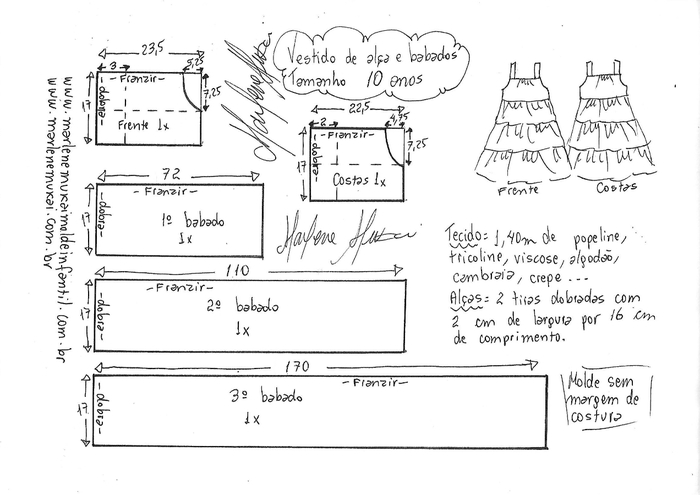 Vestido de alça e babados
Tamanho 10 anos
23,5
3
5,25
-Franzir-
7,25
17
-dobra-
Frente 1x
22,5
2
4,75
-Franzir-
7,25
17
-dobra-
Costas 1x
Frente
Costas
72
-Franzir-
17
-dobra-
1º babado
1x
Marlene Mukai
110
-Franzir-
17
-dobra-
2º babado
1x
170
-Franzir-
17
-dobra-
3º babado
1x
Tecido= 1,40m de popeline,
tricoline, viscose, algodão,
cambraia, crepe ...
Alças= 2 tiras dobradas com
2 cm de largura por 16 cm
de comprimento.
Molde sem
margem de
costura
www.marlenemukaimoldeinfantil.com.br
www.marlenemukai.com.br